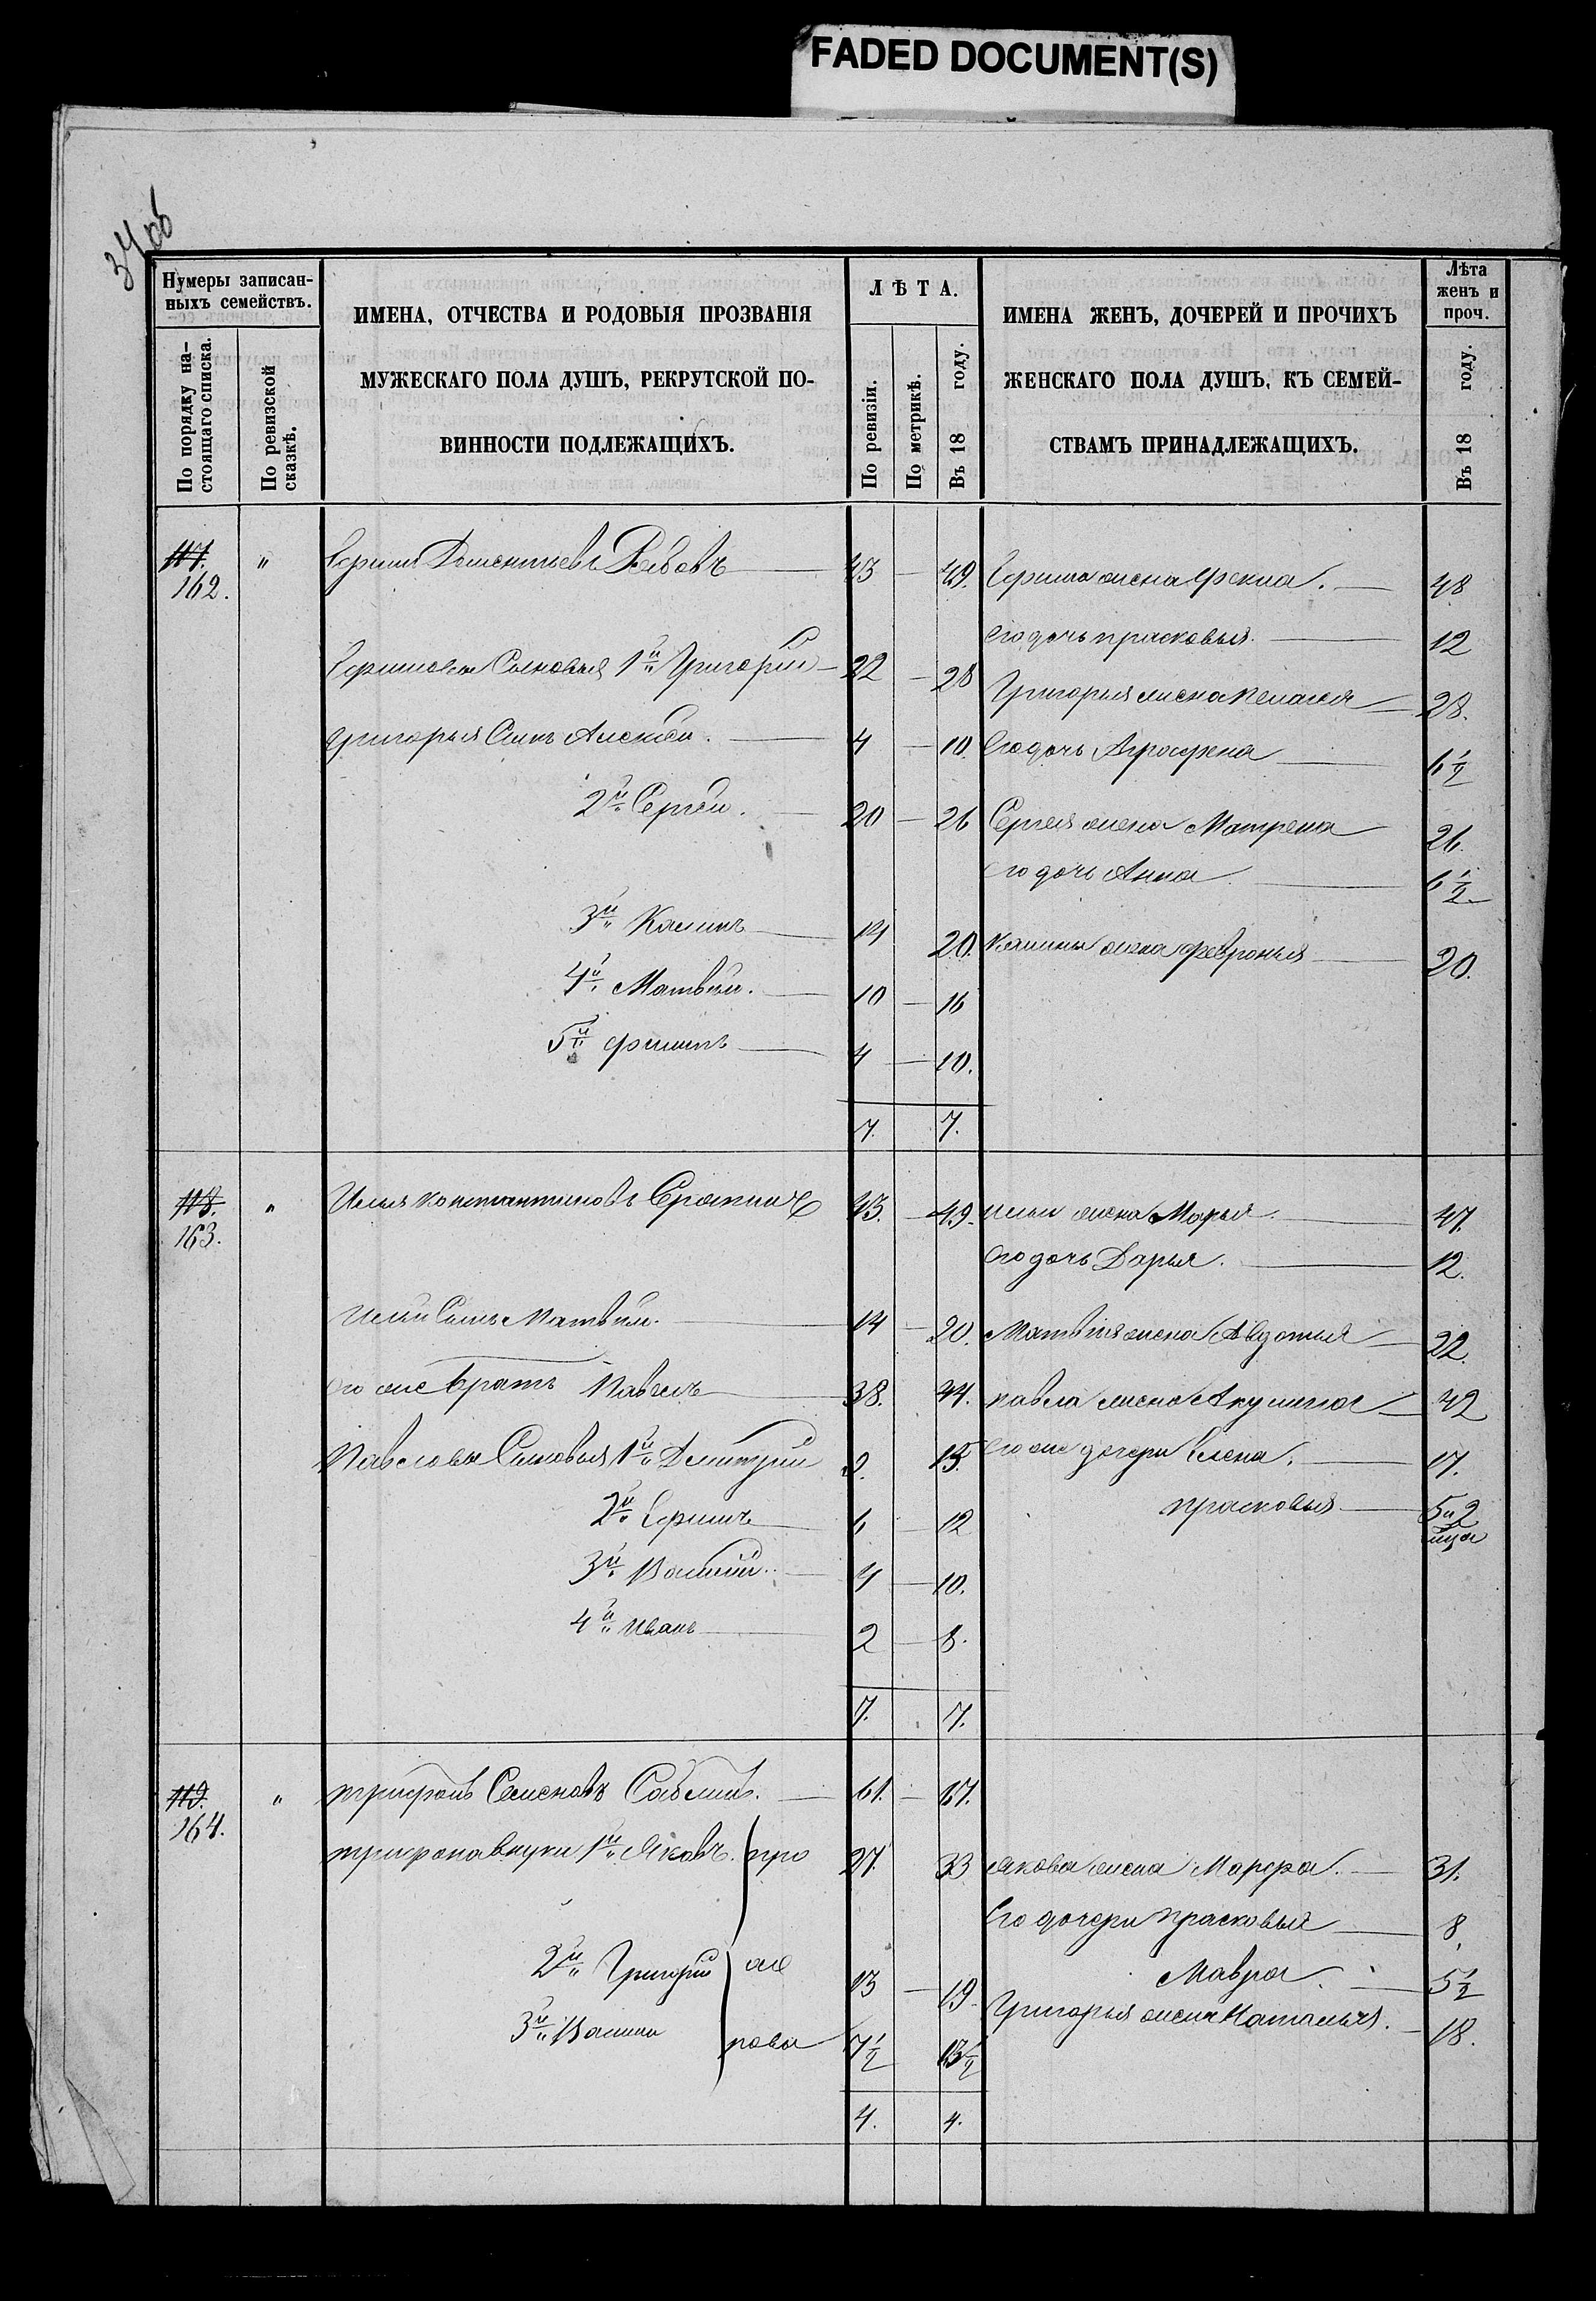 FADED DOCUMENT(S)
34 об
Нумеры записан-
ныхъ семействъ.
По порядку на-
стоящаго списка.
По ревизской
сказкѣ.
ИМЕНА, ОТЧЕСТВА И РОДОВЫЯ ПРОЗВАНІЯ
МУЖЕСКАГО ПОЛА ДУШЪ, РЕКРУТСКОЙ ПО-
ВИННОСТИ ПОДЛЕЖАЩИХЪ.
ЛѢТА.
По ревизіи.
По метрикѣ.
Въ 18 году.
ИМЕНА ЖЕНЪ, ДОЧЕРЕЙ И ПРОЧИХЪ
ЖЕНСКАГО ПОЛА ДУШЪ, КЪ СЕМЕЙ-
СТВАМЪ ПРИНАДЛЕЖАЩИХЪ.
Лѣта
женъ и
проч.
Въ 18 году.
117. " Ефимъ Дементьевъ 43 — 49. Ефима жена Фекла. — 48
162.
Его дочь прасковья. — 12
Ефимовы Сыновья 1й Григорій — 22 — 28 Григорья жена пелагея — 28.
Григорья Сынъ Алексѣй. — 4 — 10. Его дочь Агрофена — 6½
2й Сергѣй. — 20 — 26 Сергея жена Матрена — 26.
Его дочь Анна — 6½
3й Калинъ — 14 20. Калины жена февронья — 20.
4й Матвѣй. — 10 — 16
5й филипъ — 4 — 10.
7. 7.
118. " Илья Константиновъ 43. — 49. ильи жена Марья. — 47.
163.
Его дочь Дарья. — 12.
Ильи Сынъ Матвѣй. — 14 — 20. Матвѣя жена Авдотья — 22.
его же братъ Павелъ — 38. 44. павла жена Акулина — 42
Павеловы Сыновья 1й Дмитрій 9. 15. Его же дочери Елена. — 17.
2й Ефимъ — 6 — 12 прасковья — 5 и 2
мца
3й Василій. — 4 — 10.
4й Иванъ — 2 — 8.
7. 7.
119. " трифонъ Семеновъ — 61. — 67.
164.
трифона внуки 1й Яковъ. про 27. 33 якова жена Марфа. — 31.
Его дочери прасковья — 8.
2й Григорій же 13 — 19. Мавра. — 5½
Григорья жена Наталья. — 18.
3й Василій рова 7½ 13½
4. 4.